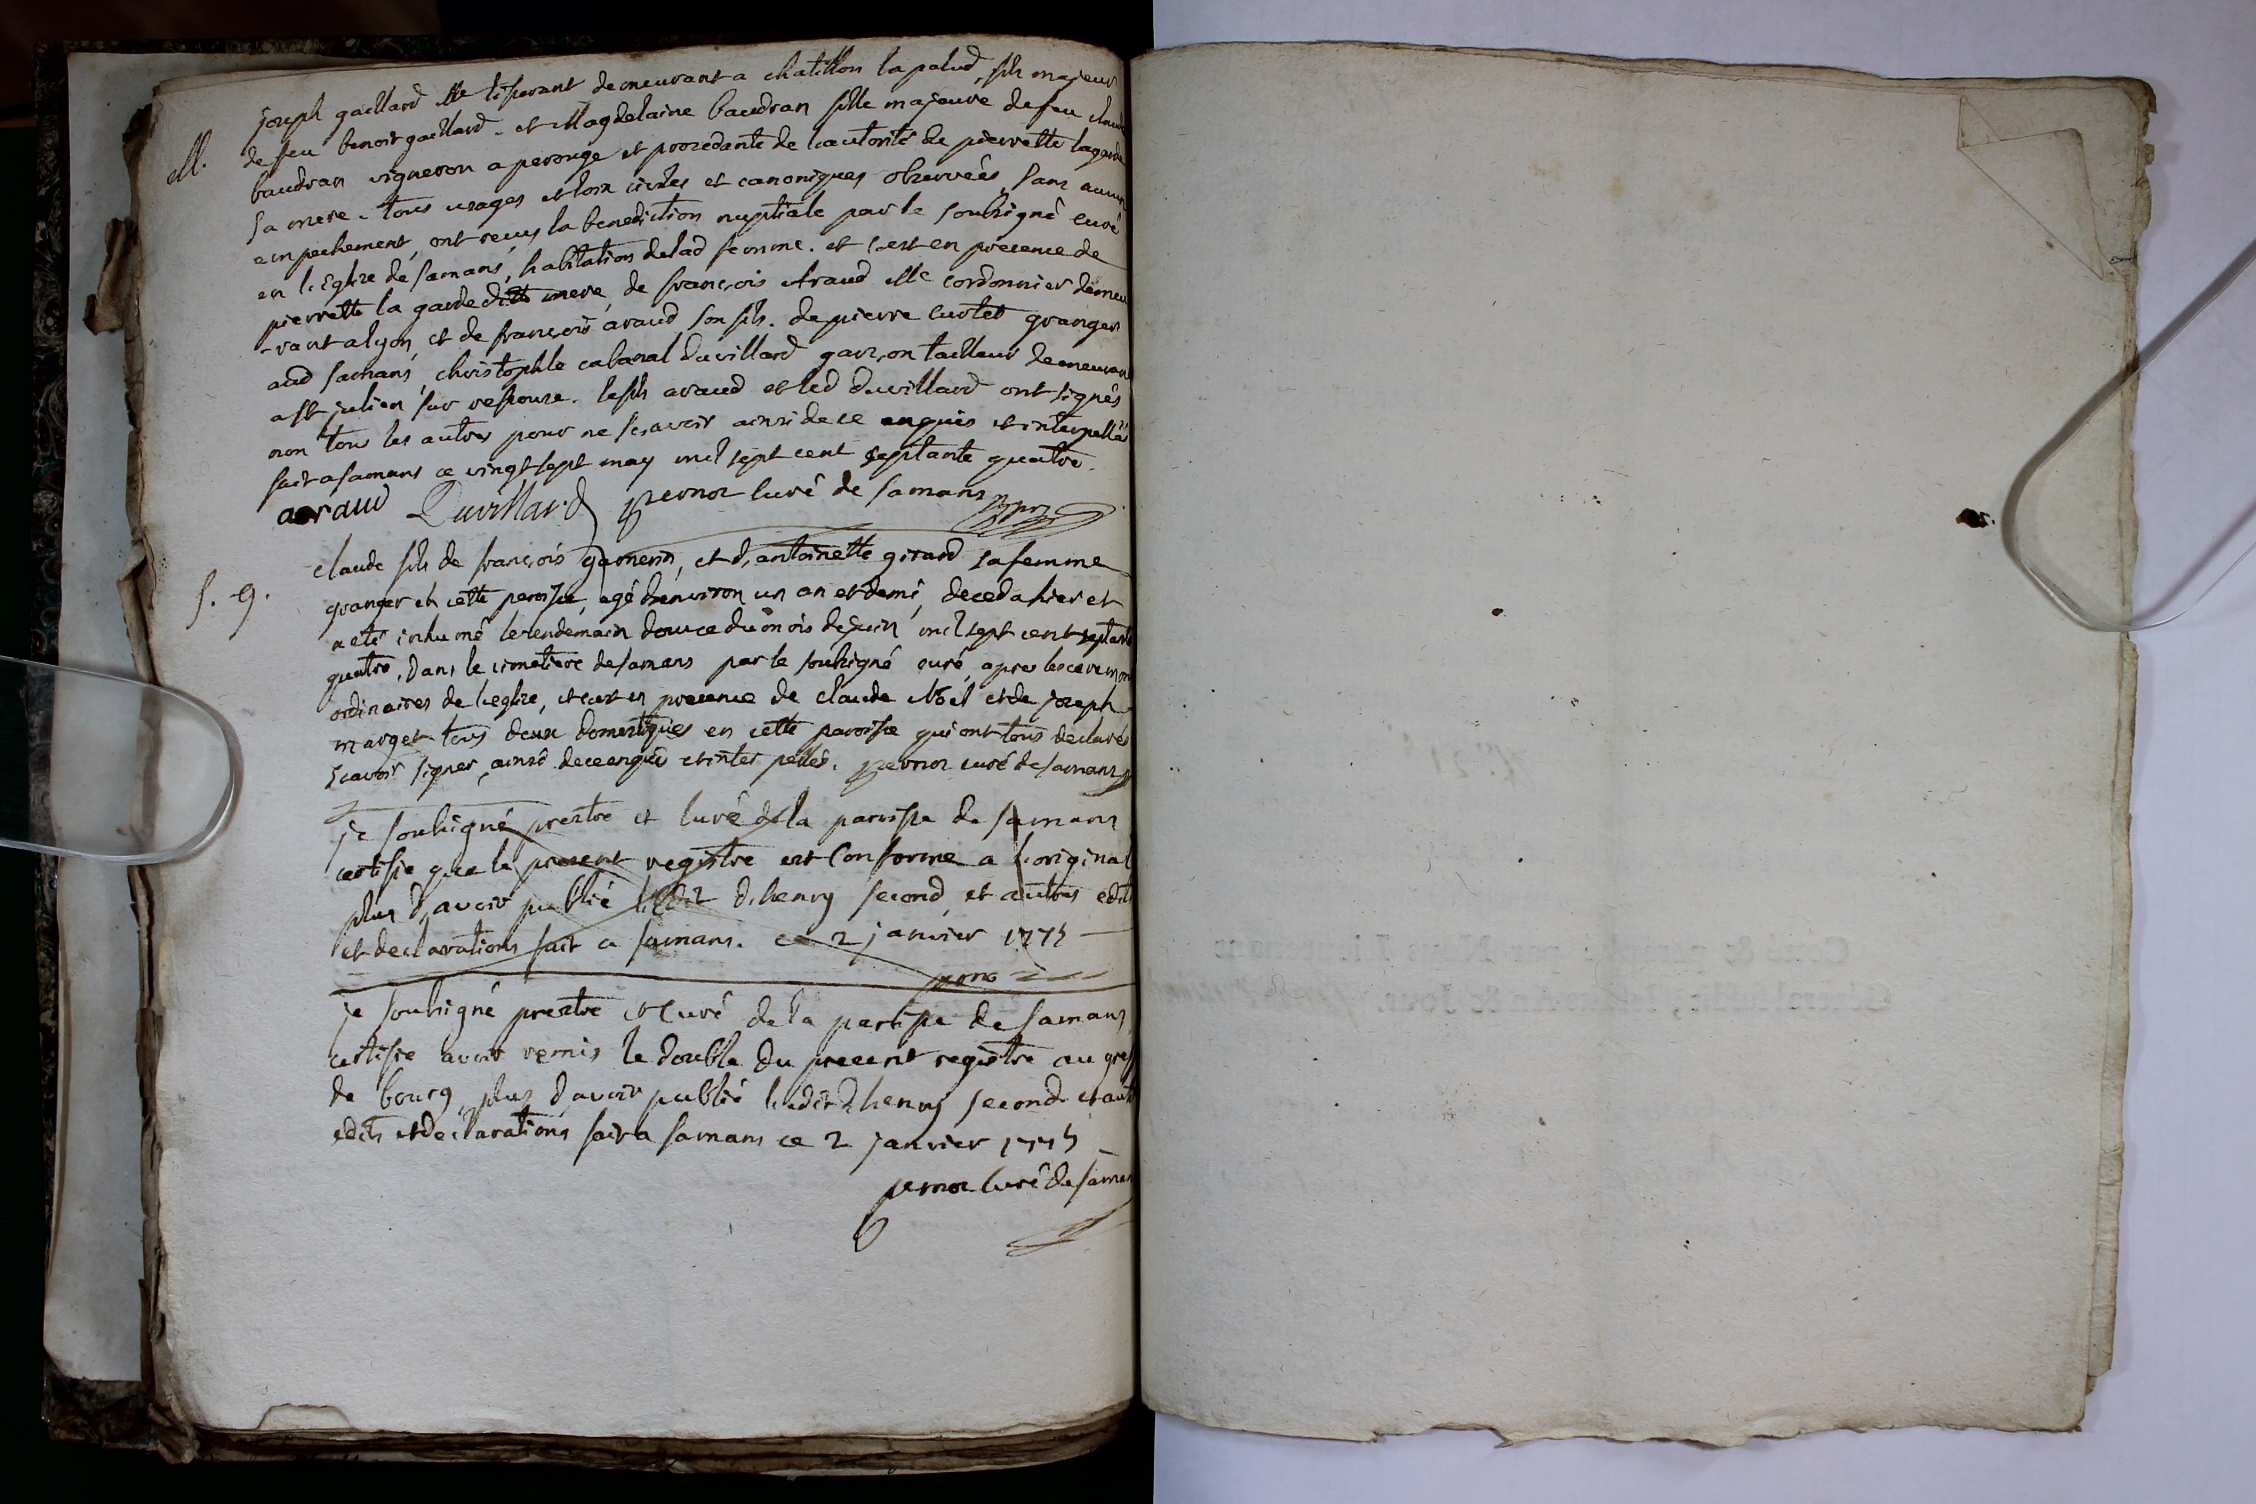 joseph gaillard Me tisserant demeurant a chatillon la palud, fils majeur
M. de feu benoit gaillard. et Magdelaine baudran fille majeure de feu claude
baudran vigneron a perouge et procedante de l'autorité de pierrette lagarde
sa mere. tous usages et loix civiles et canoniques observées, sans aucun
empechement, ont reçus la benediction nuptiale par le soussigné curé
en l'Eglise de samans, habitation de lad femme. et c'est en presence de
pierrette la garde ditte mere, de françois Araud Me cordonnier demeu
-rant a lyon, et de françois araud son fils. de pierre curtet granger
aud samans, christophle cabanal duvillard garçon tailleur demeurant
a St julien sur ressouze. le fils araud et led duvillard ont signés
non tous les autres pour ne sçavoir ainsi de ce enquis et interpellés
fait a samans ce vingt sept may mil sept cent septante quatre.
araud Duvillard pernoz curé de samans
claude fils de françois et d'antoinette girard sa femme
S. 9. granger en cette paroisse, agé d'environ un an et demi, deceda hier et
a eté inhumé le lendemain douze du mois de juin mil sept cent septante
quatre, dans le cimetiere de samans par le soussigné curé, apres les ceremon
ordinaires de l'eglise, et c'est en presence de claude Noël et de joseph
marget tous deux domestiques en cette paroisse qui ont tous declarés
scavoir signer, ainsi de ce enquis et interpellés. pernoz curé de samans
je soussigné prestre et curé de la paroisse de samans
certifie que le present registre est conforme a l'original
plus d'avoir publié l'edit d'henry second, et autres edits
et declarations fait a samans. ce 2 janvier 1775
pernoz
je soussigné prestre et curé de la paroisse de samans
certifie avoir remis le double du present registre au greff
de bourg, plus d'avoir publié l'edit d'henry second et autr
edits et declarations fait a samans ce 2 janvier 1775
pernoz curé de saman